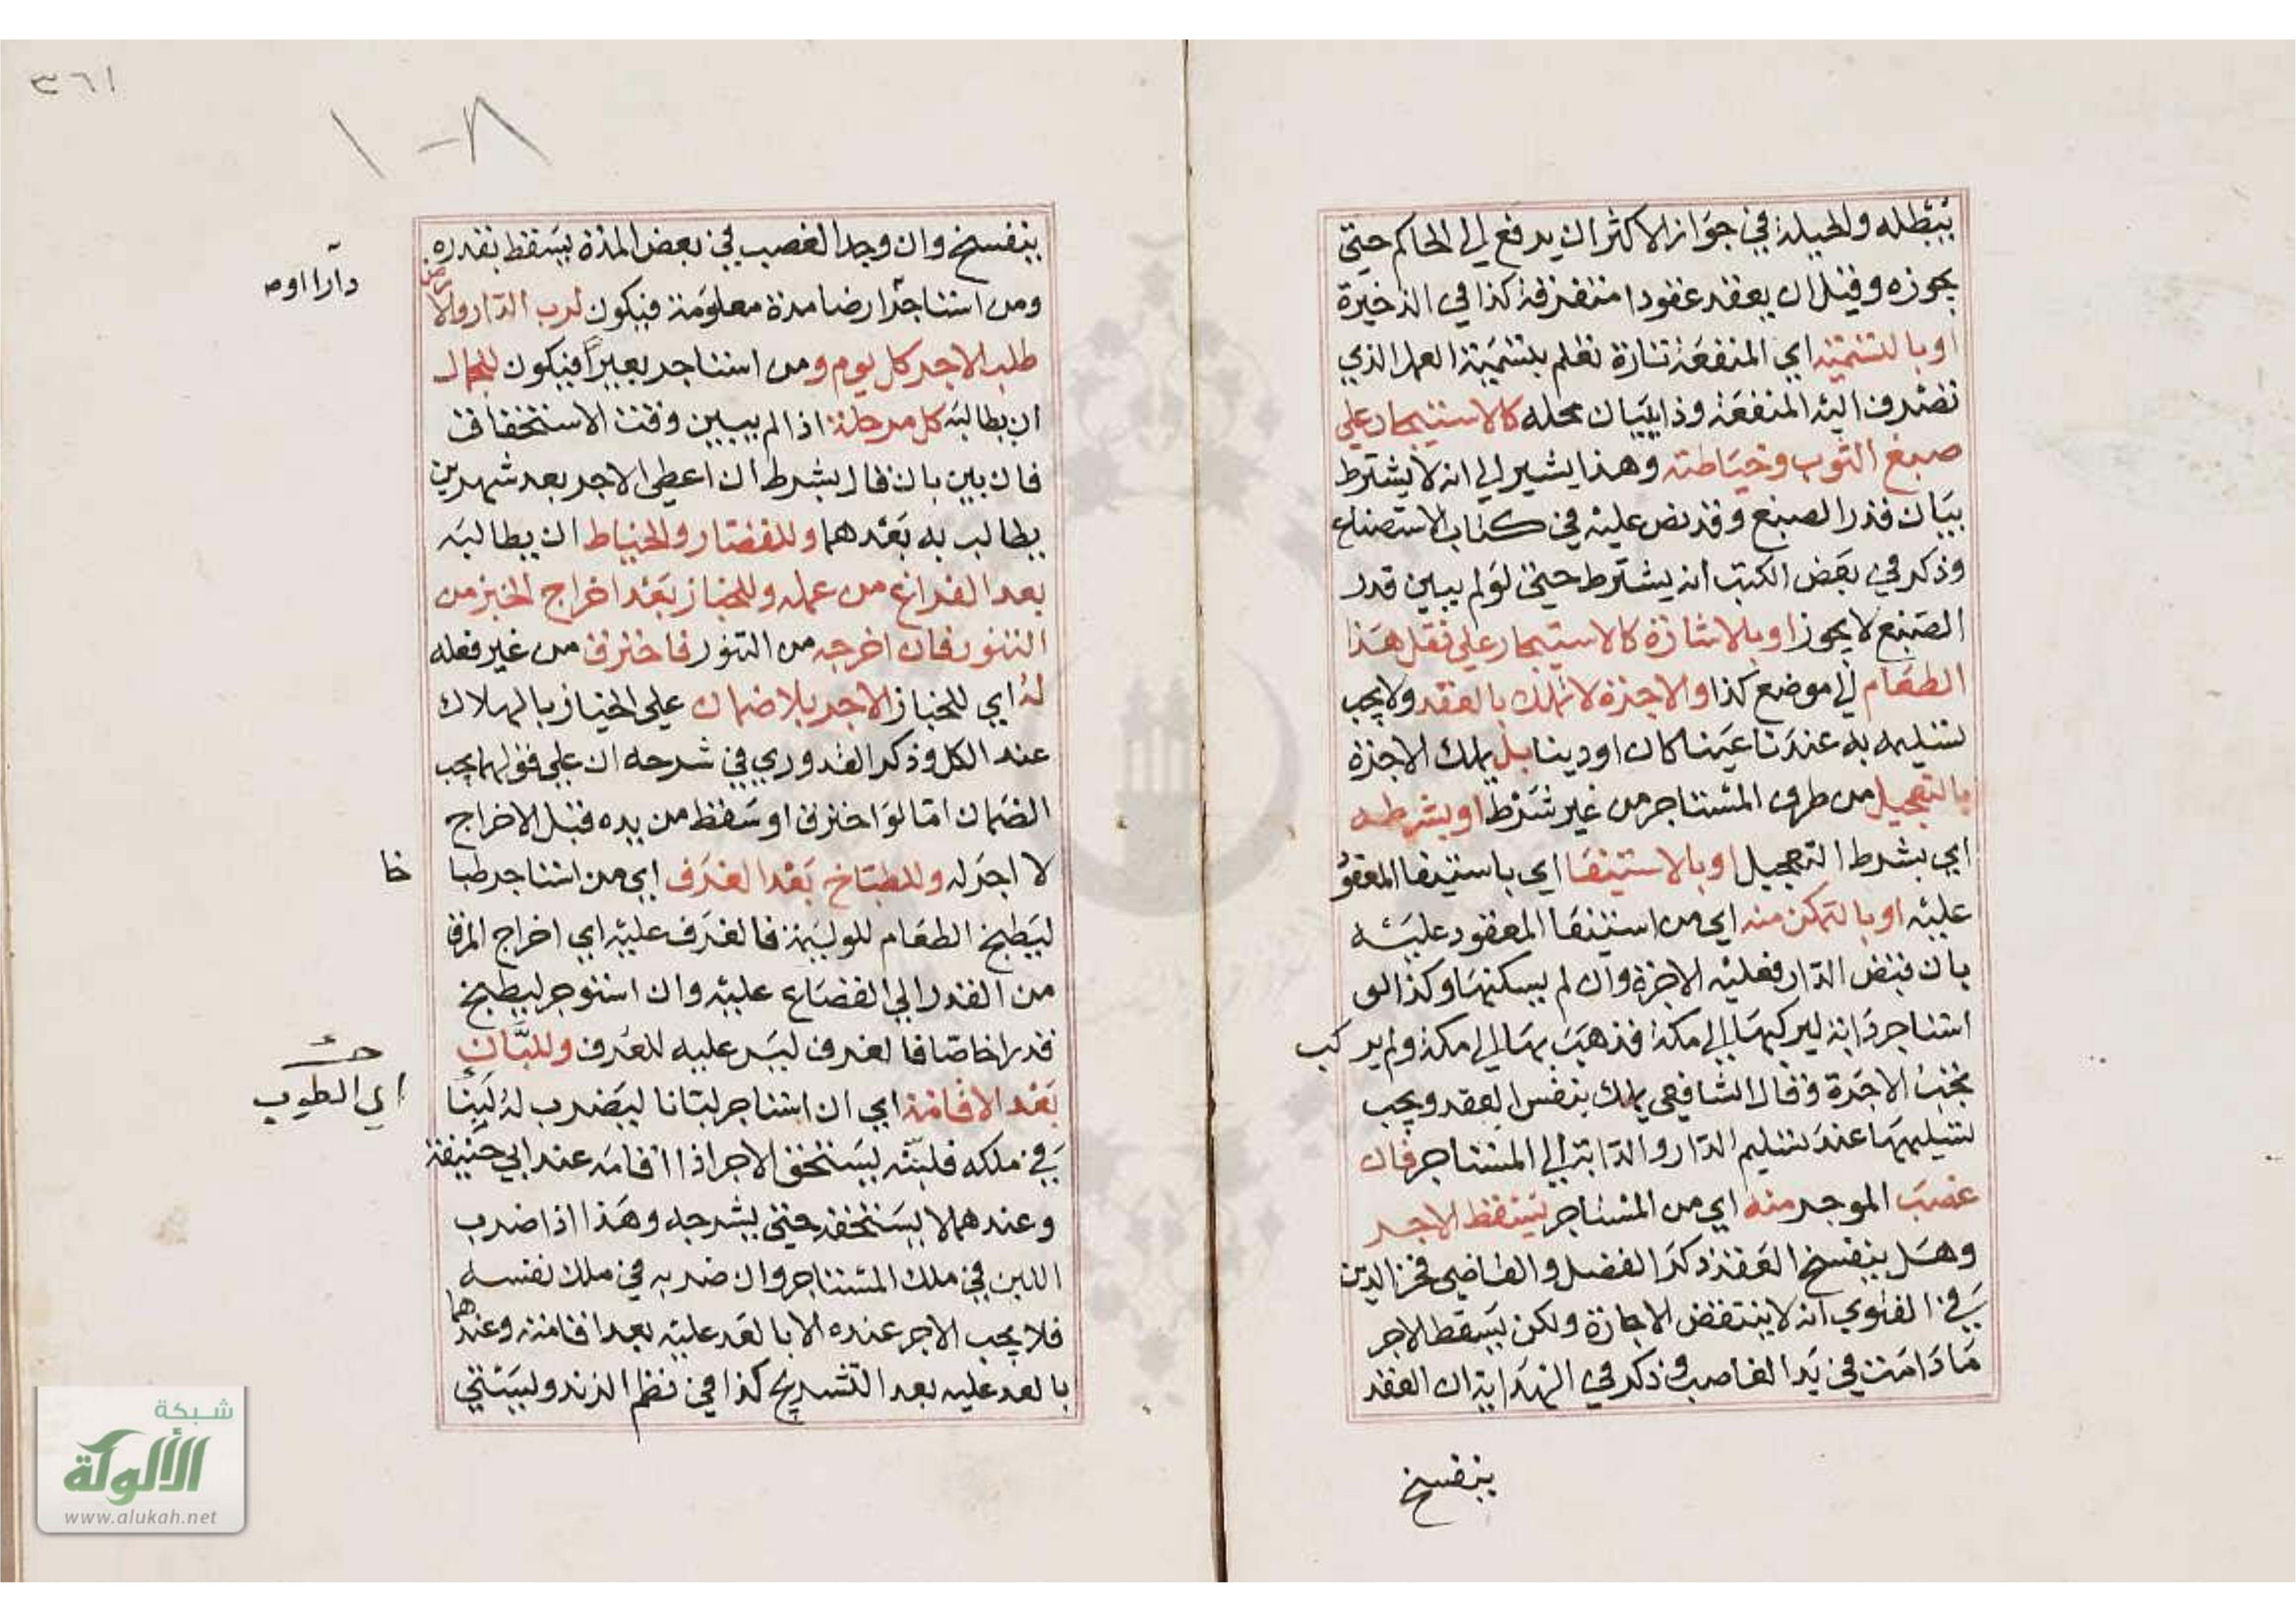 يبطله والحيلة في جواز الاكثر ان يدفع الي الحاكم حتي
يجوزه وقيل ان يعقد عقودا متفرقة كذا في الذخيرة
او بالتسمية اي المنفعة تارة تعلم بتسمية العمل الذي
تصرف اليه المنفعة وذا ببيان محله كالاستيجار علي
صبغ الثوب وخياطته وهذا يشير الي انه لا يشترط
بيان قدر الصبغ وقد نص عليه في كتاب الاستصناع
وذكر في بعض الكتب انه يشترط حتي لو لم يبين قدر
الصبغ لا يجوز او بالاشارة كالاستيجار علي نقل هذا
الطعام الي موضع كذا والاجرة لا تملك بالعقد ولا يجب
تسليمه به عندنا عينا كان او دينا بل يملك الاجرة
بالتعجيل من طرف المستاجر من غير شرط او بشرطه
اي بشرط التعجيل او بالاستيفا اي باستيفا المعقود
عليه او بالتمكن منه اي من استيفا المعقود عليه
بان قبض الدار فعليه الاجرة وان لم يسكنها وكذا لو
استاجر دابة ليركبها الي مكة فذهب بها الي مكة ولم يركب
تجب الاجرة وقال الشافعي يملك بنفس العقد ويجب
تسليمها عند تسليم الدار والدابة الي المستاجر فان
غصب الموجر منه اي من المستاجر يسقط الاجر
وهل ينفسخ العقد ذكر الفضل والقاضي فخر الدين
في الفتوي انه لا ينتقض الاجارة ولكن يسقط الاجر
ما دامت في يد الغاصب وذكر في الهداية ان العقد
ينفسخ
٣٦١
ينفسخ وان وجد الغصب في بعض المدة يسقط بقدره
ومن استاجر ارضا مدة معلومة فيكون لرب الدار والارض
دارا او صح
طلب الاجر كل يوم ومن استاجر بعيرا فيكون للجمال
ان يطالبه كل مرحلة اذا لم يبين وقت الاستحقاق
فان بين بان قال بشرط ان اعطي الاجر بعد شهرين
يطالب به بعدهما وللقصار والخياط ان يطالبه
بعد الفراغ من عمله وللخباز بعد اخراج الخبز من
التنور فان اخرجه من التنور فاحترق من غير فعله
له اي للخباز الاجر بلا ضمان علي الخباز بالهلاك
عند الكل وذكر القدوري في شرحه ان علي قولهما يجب
الضمان اما لو احترق او سقط من يده قبل الاخراج
لا اجر له وللطباخ بعد الغرف اي من استاجر طبا
خا
ليطبخ الطعام للوليمة فالغرف عليه اي اخراج المرقا
من القدر الي القصاع عليه وان استوجر ليطبخ
قدرا خاصا فالغرف ليس عليه للعرف وللبان
اي الطوب
بعد الاقامة اي ان استاجر لبانا ليضرب له لبنا
في ملكه فلبنه يستحق الاجر اذا اقامه عند ابي حنيفة
وعندهما لا يستحقه حتي يشرجه وهذا اذا ضرب
اللبن في ملك المستاجر وان ضربه في ملك نفسه
فلا يجب الاجر عنده الا بالعد عليه بعد اقامته وعندهما
بالعد عليه بعد التشريج كذا في نظم الزندويستي
شبكة
الألوكة
www.alukah.net